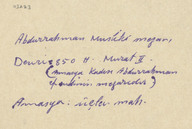 Abdurrahman Muslihi mezarı,
Devri: 850 H - Murat II.
(Amasya Kadısı Abdurrahman
Efendinin mezarıdır)
Amasya: üçler mah.